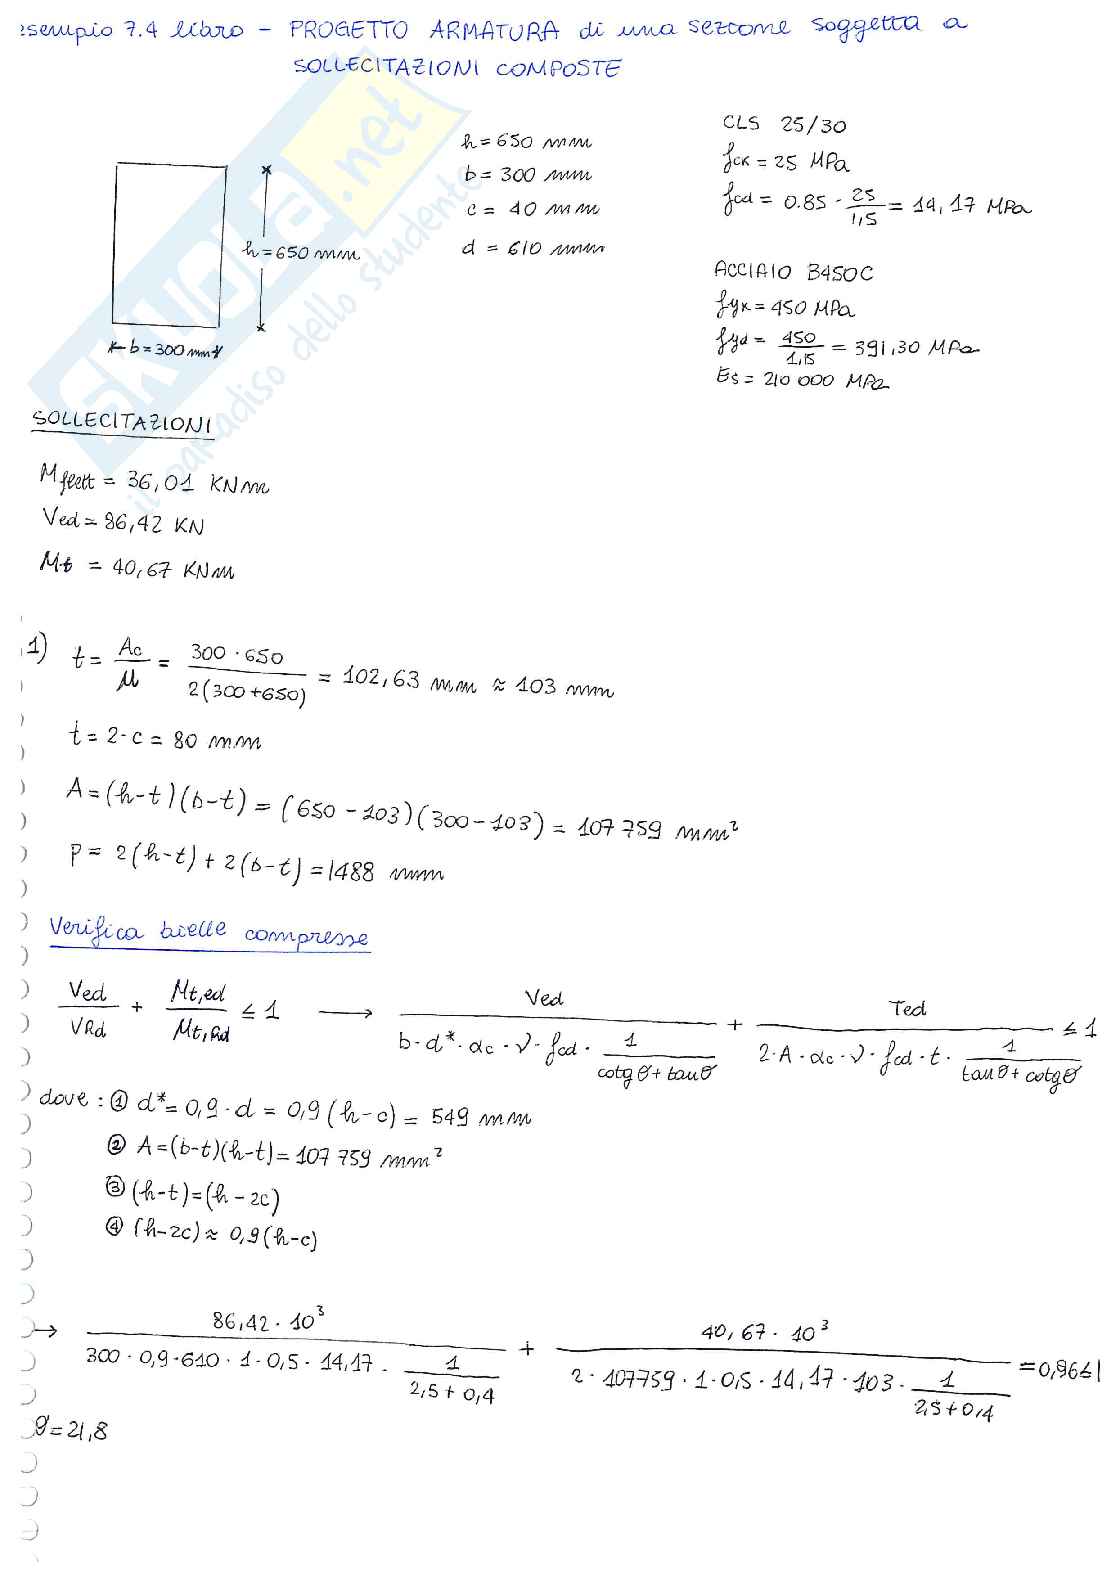 esempio 7.4 libro - PROGETTO ARMATURA di una sezione soggetta a
SOLLECITAZIONI COMPOSTE
SKUOLA.net
il paradiso dello studente
h = 650 mm
b = 300 mm
c = 40 mm
d = 610 mm
CLS 25/30
fck = 25 MPa
fcd = 0.85 · 25/1,5 = 14,17 MPa
ACCIAIO B450C
fyk = 450 MPa
fyd = 450/1,15 = 391,30 MPa
Es = 210 000 MPa
h = 650 mm
b = 300 mm
SOLLECITAZIONI
Mflett = 36,01 KNm
Ved = 86,42 KN
Mt = 40,67 KNm
1) t = Ac/μ = 300 · 650 / 2(300+650) = 102,63 mm ≈ 103 mm
t = 2·c = 80 mm
A = (h-t)(b-t) = (650 - 103)(300 - 103) = 107 759 mm²
P = 2(h-t) + 2(b-t) = 1488 mm
Verifica bielle compresse
Ved/VRd + Mt,ed/Mt,Rd ≤ 1 → Ved / b·d*·αc·ν·fcd· 1/cotgθ+tanθ + Ted / 2·A·αc·ν·fcd·t· 1/tanθ+cotgθ ≤ 1
dove: ① d* = 0,9·d = 0,9(h-c) = 549 mm
② A = (b-t)(h-t) = 107 759 mm²
③ (h-t) = (h-2c)
④ (h-2c) ≈ 0,9(h-c)
→ 86,42·10³ / 300·0,9·610·1·0,5·14,17· 1/2,5+0,4 + 40,67·10³ / 2·107759·1·0,5·14,17·103· 1/2,5+0,4 = 0,96≤1
θ = 21,8